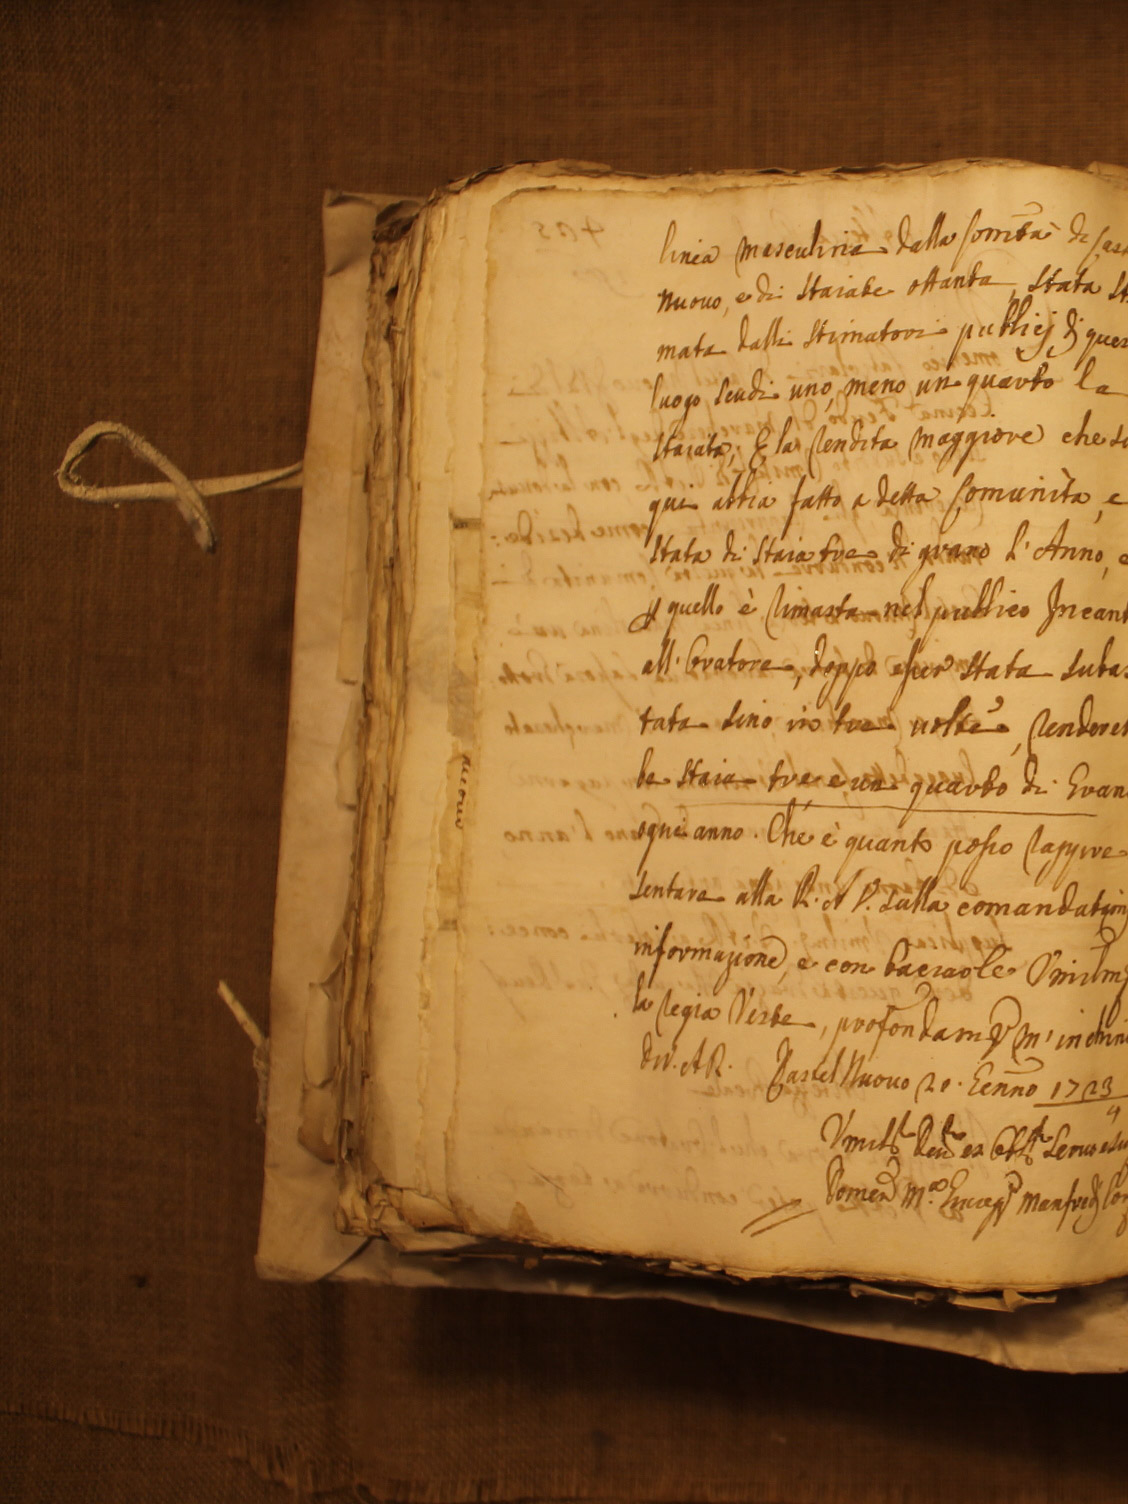 linea masculina dalla Com.tà di Cas
nuovo, e di staiate ottanta, stata sti
mata dalli stimatori publici di ques
luogo scudi uno, meno un quarto la
staiata; E la rendita maggiore che s
qui abbia fatto a detta Comunità, e
stata di staia tre di grano l'Anno, e
quello è rimasta nel publico Incant
all'Oratore, doppo esser stata subas
tata sino in tre volte, rendereb
be staia tre e un quarto di Gran
ogni anno. Che è quanto posso rappre
sentare alla R. A. V. sulla comandatami
informazione, e con baciarle Umilm.
la regia Veste, profondam.e m'inchin
di V. A. R. Castel Nuovo 20. Genn.o 1723
4
Umiliss. Dev.mo ed Obl.mo Servo e
Domen. M.a Manfredi
nuovo